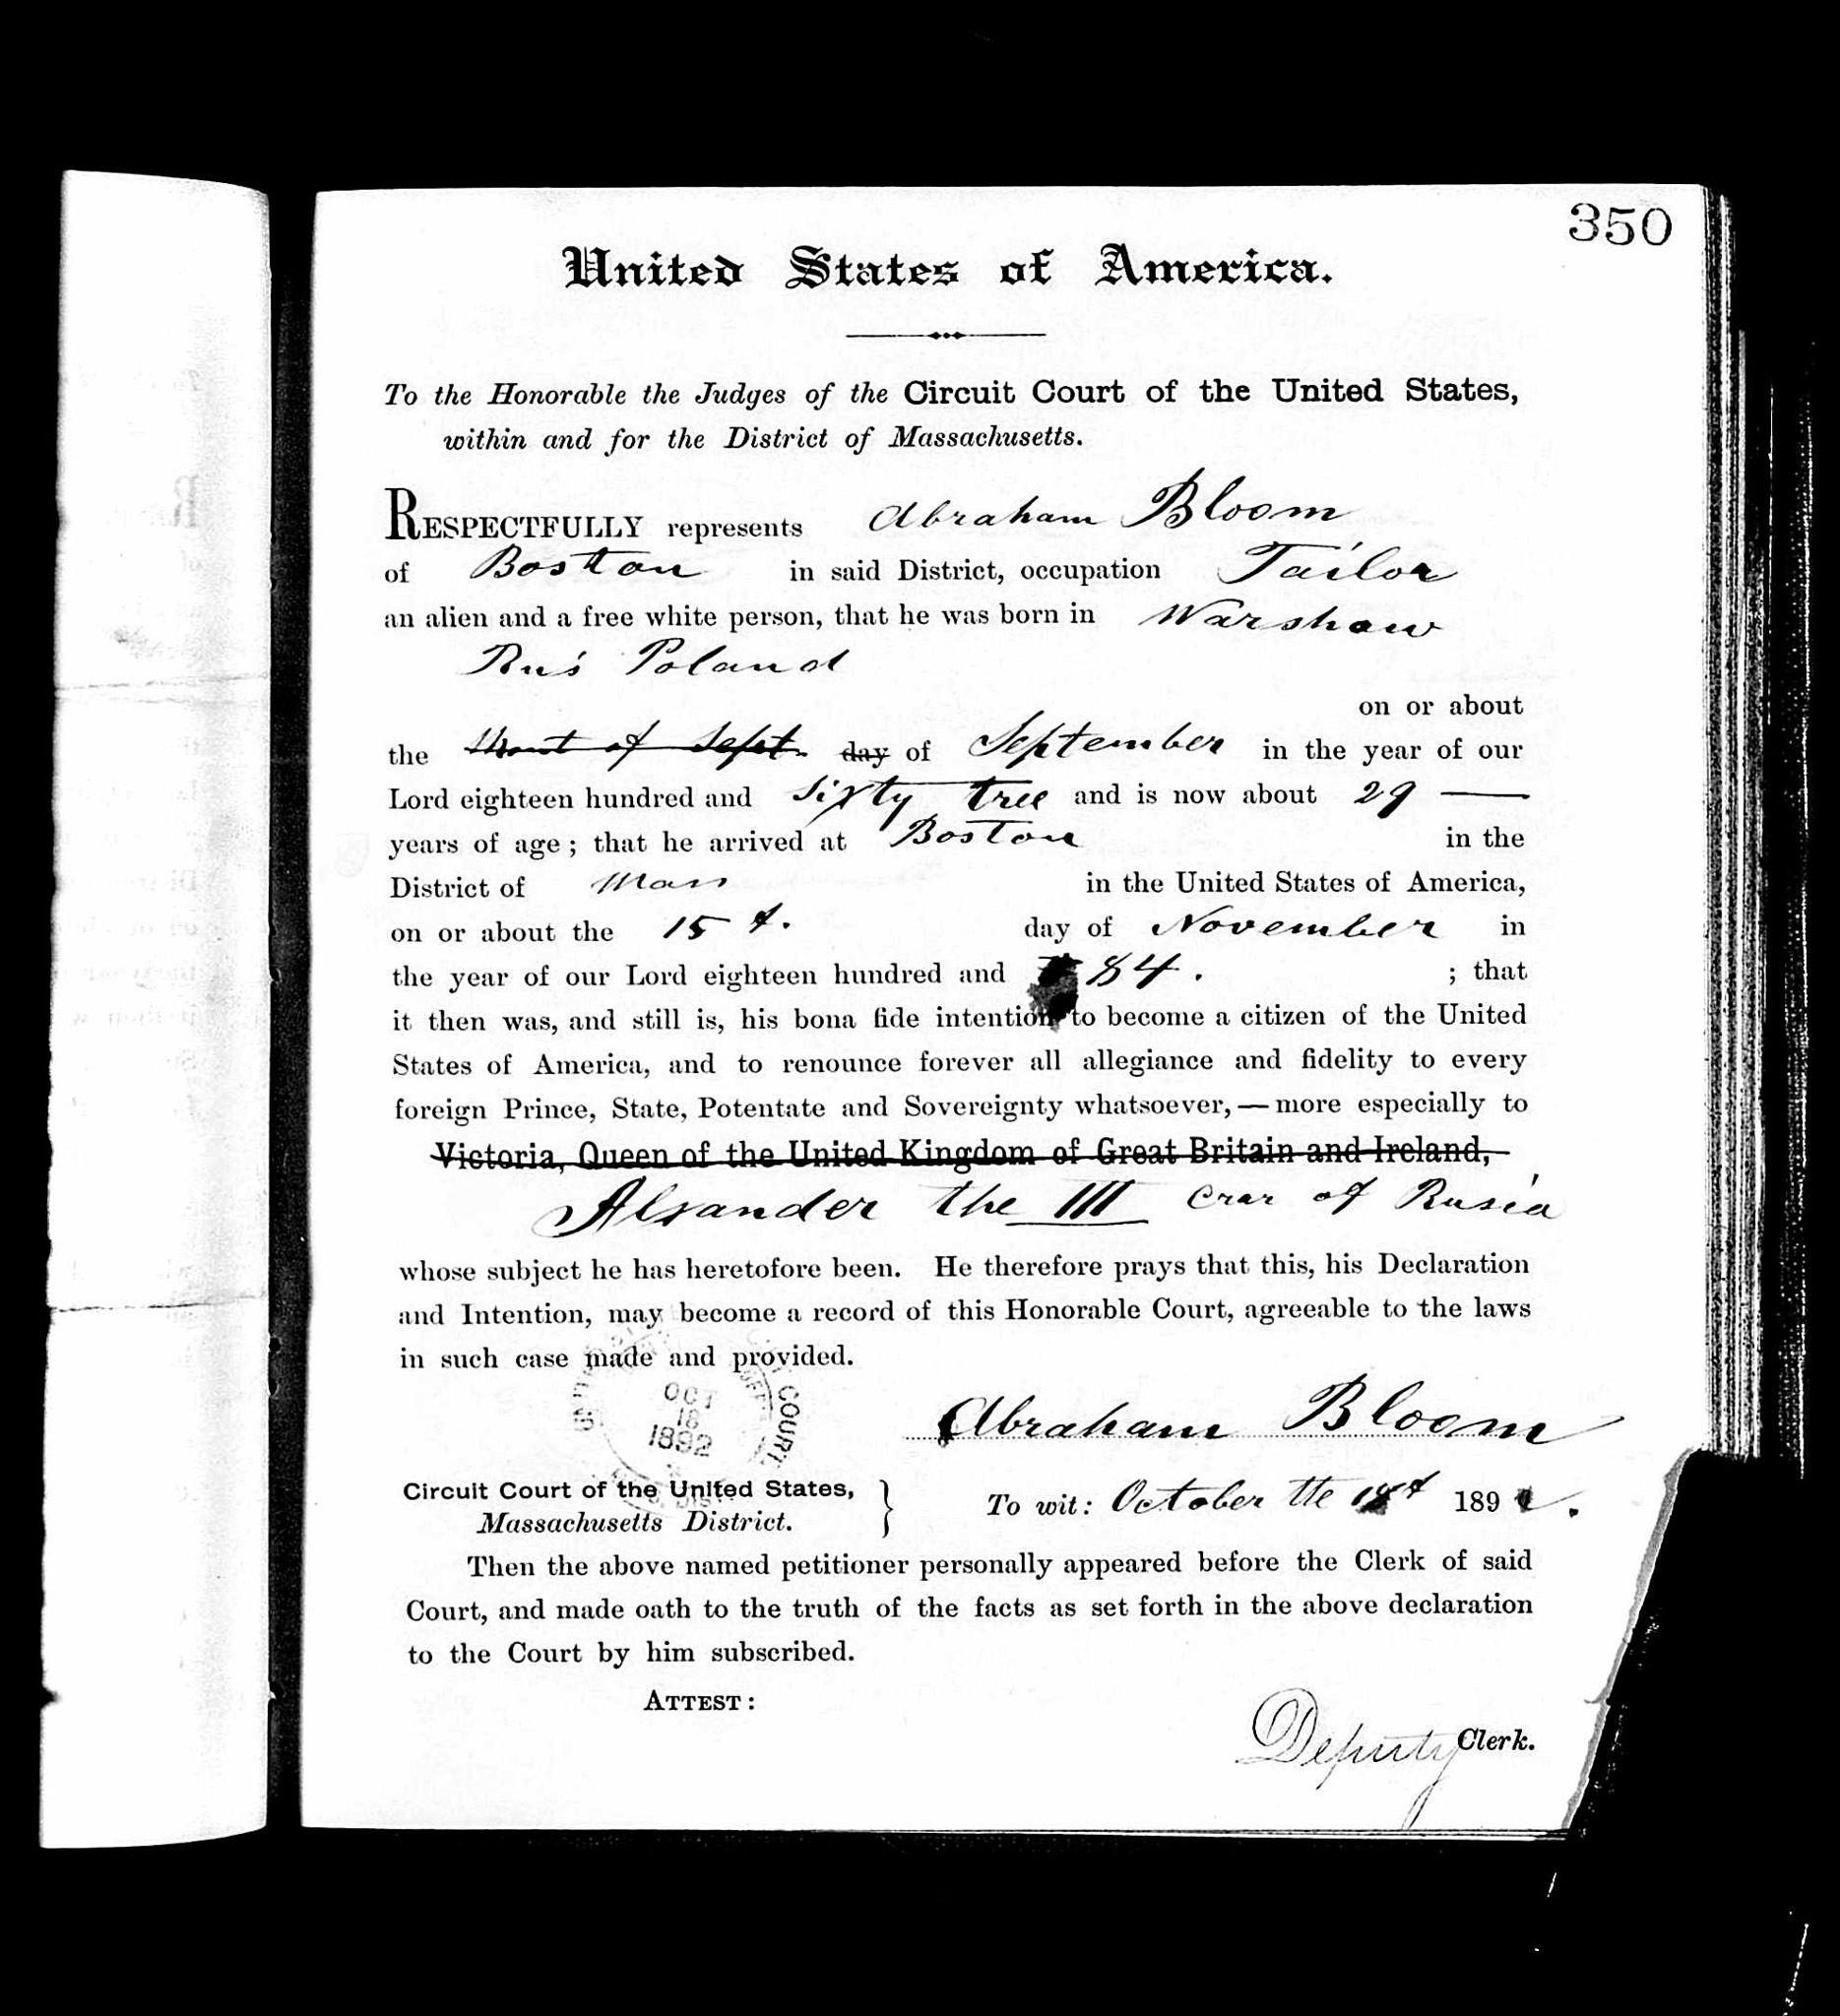 350
United States of America.
To the Honorable the Judges of the Circuit Court of the United States,
within and for the District of Massachusetts.
RESPECTFULLY represents Abraham Bloom
of Boston in said District, occupation Tailor
an alien and a free white person, that he was born in Warshaw
Rus Poland
on or about
the Mont of Sept. day of September in the year of our
Lord eighteen hundred and Sixty tree and is now about 29 —
years of age; that he arrived at Boston in the
District of Mass in the United States of America,
on or about the 15 t. day of November in
the year of our Lord eighteen hundred and 84. ; that
it then was, and still is, his bona fide intention to become a citizen of the United
States of America, and to renounce forever all allegiance and fidelity to every
foreign Prince, State, Potentate and Sovereignty whatsoever,—more especially to
Victoria, Queen of the United Kingdom of Great Britain and Ireland,
Alxander the III Crar of Rusia
whose subject he has heretofore been. He therefore prays that this, his Declaration
and Intention, may become a record of this Honorable Court, agreeable to the laws
in such case made and provided.
COURT
OCT
18
1892
Abraham Bloom
Circuit Court of the United States,
Massachusetts District. } To wit: October the 18t 1892.
Then the above named petitioner personally appeared before the Clerk of said
Court, and made oath to the truth of the facts as set forth in the above declaration
to the Court by him subscribed.
ATTEST:
Deputy Clerk.